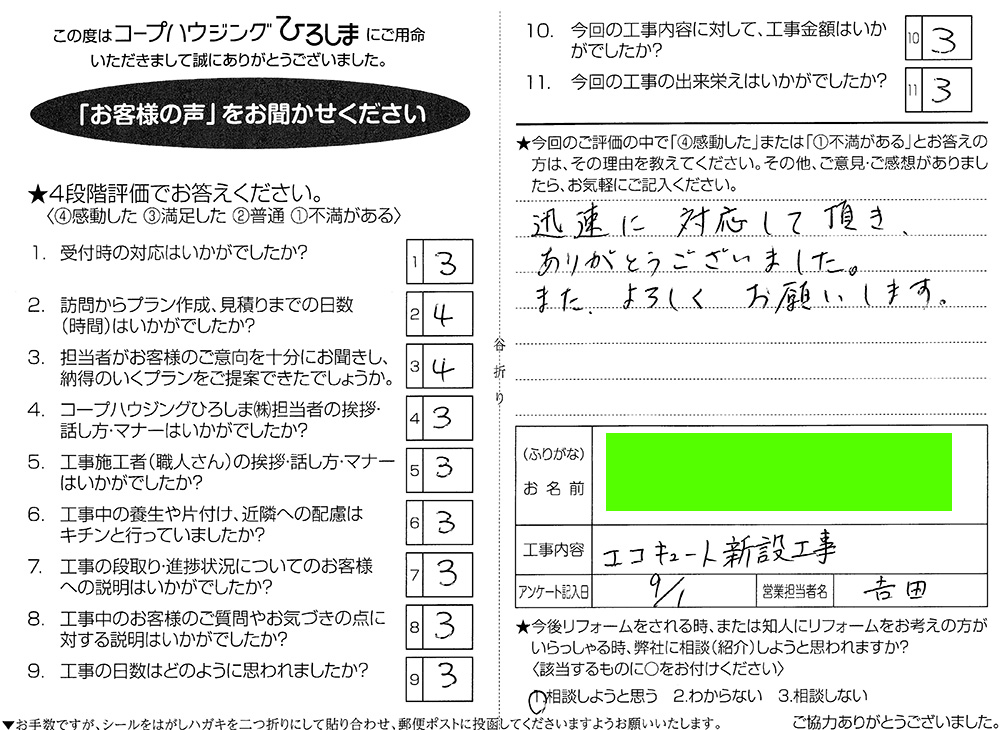 この度はコープハウジングひろしまにご用命
いただきまして誠にありがとうございました。
「お客様の声」をお聞かせください
★4段階評価でお答えください。
〈④感動した ③満足した ②普通 ①不満がある〉
1. 受付時の対応はいかがでしたか?
1 3
2. 訪問からプラン作成、見積りまでの日数
(時間)はいかがでしたか?
2 4
3. 担当者がお客様のご意向を十分にお聞きし、
納得のいくプランをご提案できたでしょうか。
3 4
4. コープハウジングひろしま㈱担当者の挨拶・
話し方・マナーはいかがでしたか?
4 3
5. 工事施工者(職人さん)の挨拶・話し方・マナー
はいかがでしたか?
5 3
6. 工事中の養生や片付け、近隣への配慮は
キチンと行っていましたか?
6 3
7. 工事の段取り・進捗状況についてのお客様
への説明はいかがでしたか?
7 3
8. 工事中のお客様のご質問やお気づきの点に
対する説明はいかがでしたか?
8 3
9. 工事の日数はどのように思われましたか?
9 3
▼お手数ですが、シールをはがしハガキを二つ折りにして貼り合わせ、郵便ポストに投函してくださいますようお願いいたします。
谷折り
10. 今回の工事内容に対して、工事金額はいか
がでしたか?
10 3
11. 今回の工事の出来栄えはいかがでしたか?
11 3
★今回のご評価の中で「④感動した」または「①不満がある」とお答えの
方は、その理由を教えてください。その他、ご意見・ご感想がありまし
たら、お気軽にご記入ください。
迅速に 対応して頂き、
ありがとうございました。
また、よろしく お願いします。
(ふりがな)
お名前
工事内容 エコキュート新設工事
アンケート記入日 9/1 営業担当者名 吉田
★今後リフォームをされる時、または知人にリフォームをお考えの方が
いらっしゃる時、弊社に相談(紹介)しようと思われますか?
〈該当するものに○をお付けください〉
1.相談しようと思う 2.わからない 3.相談しない
ご協力ありがとうございました。